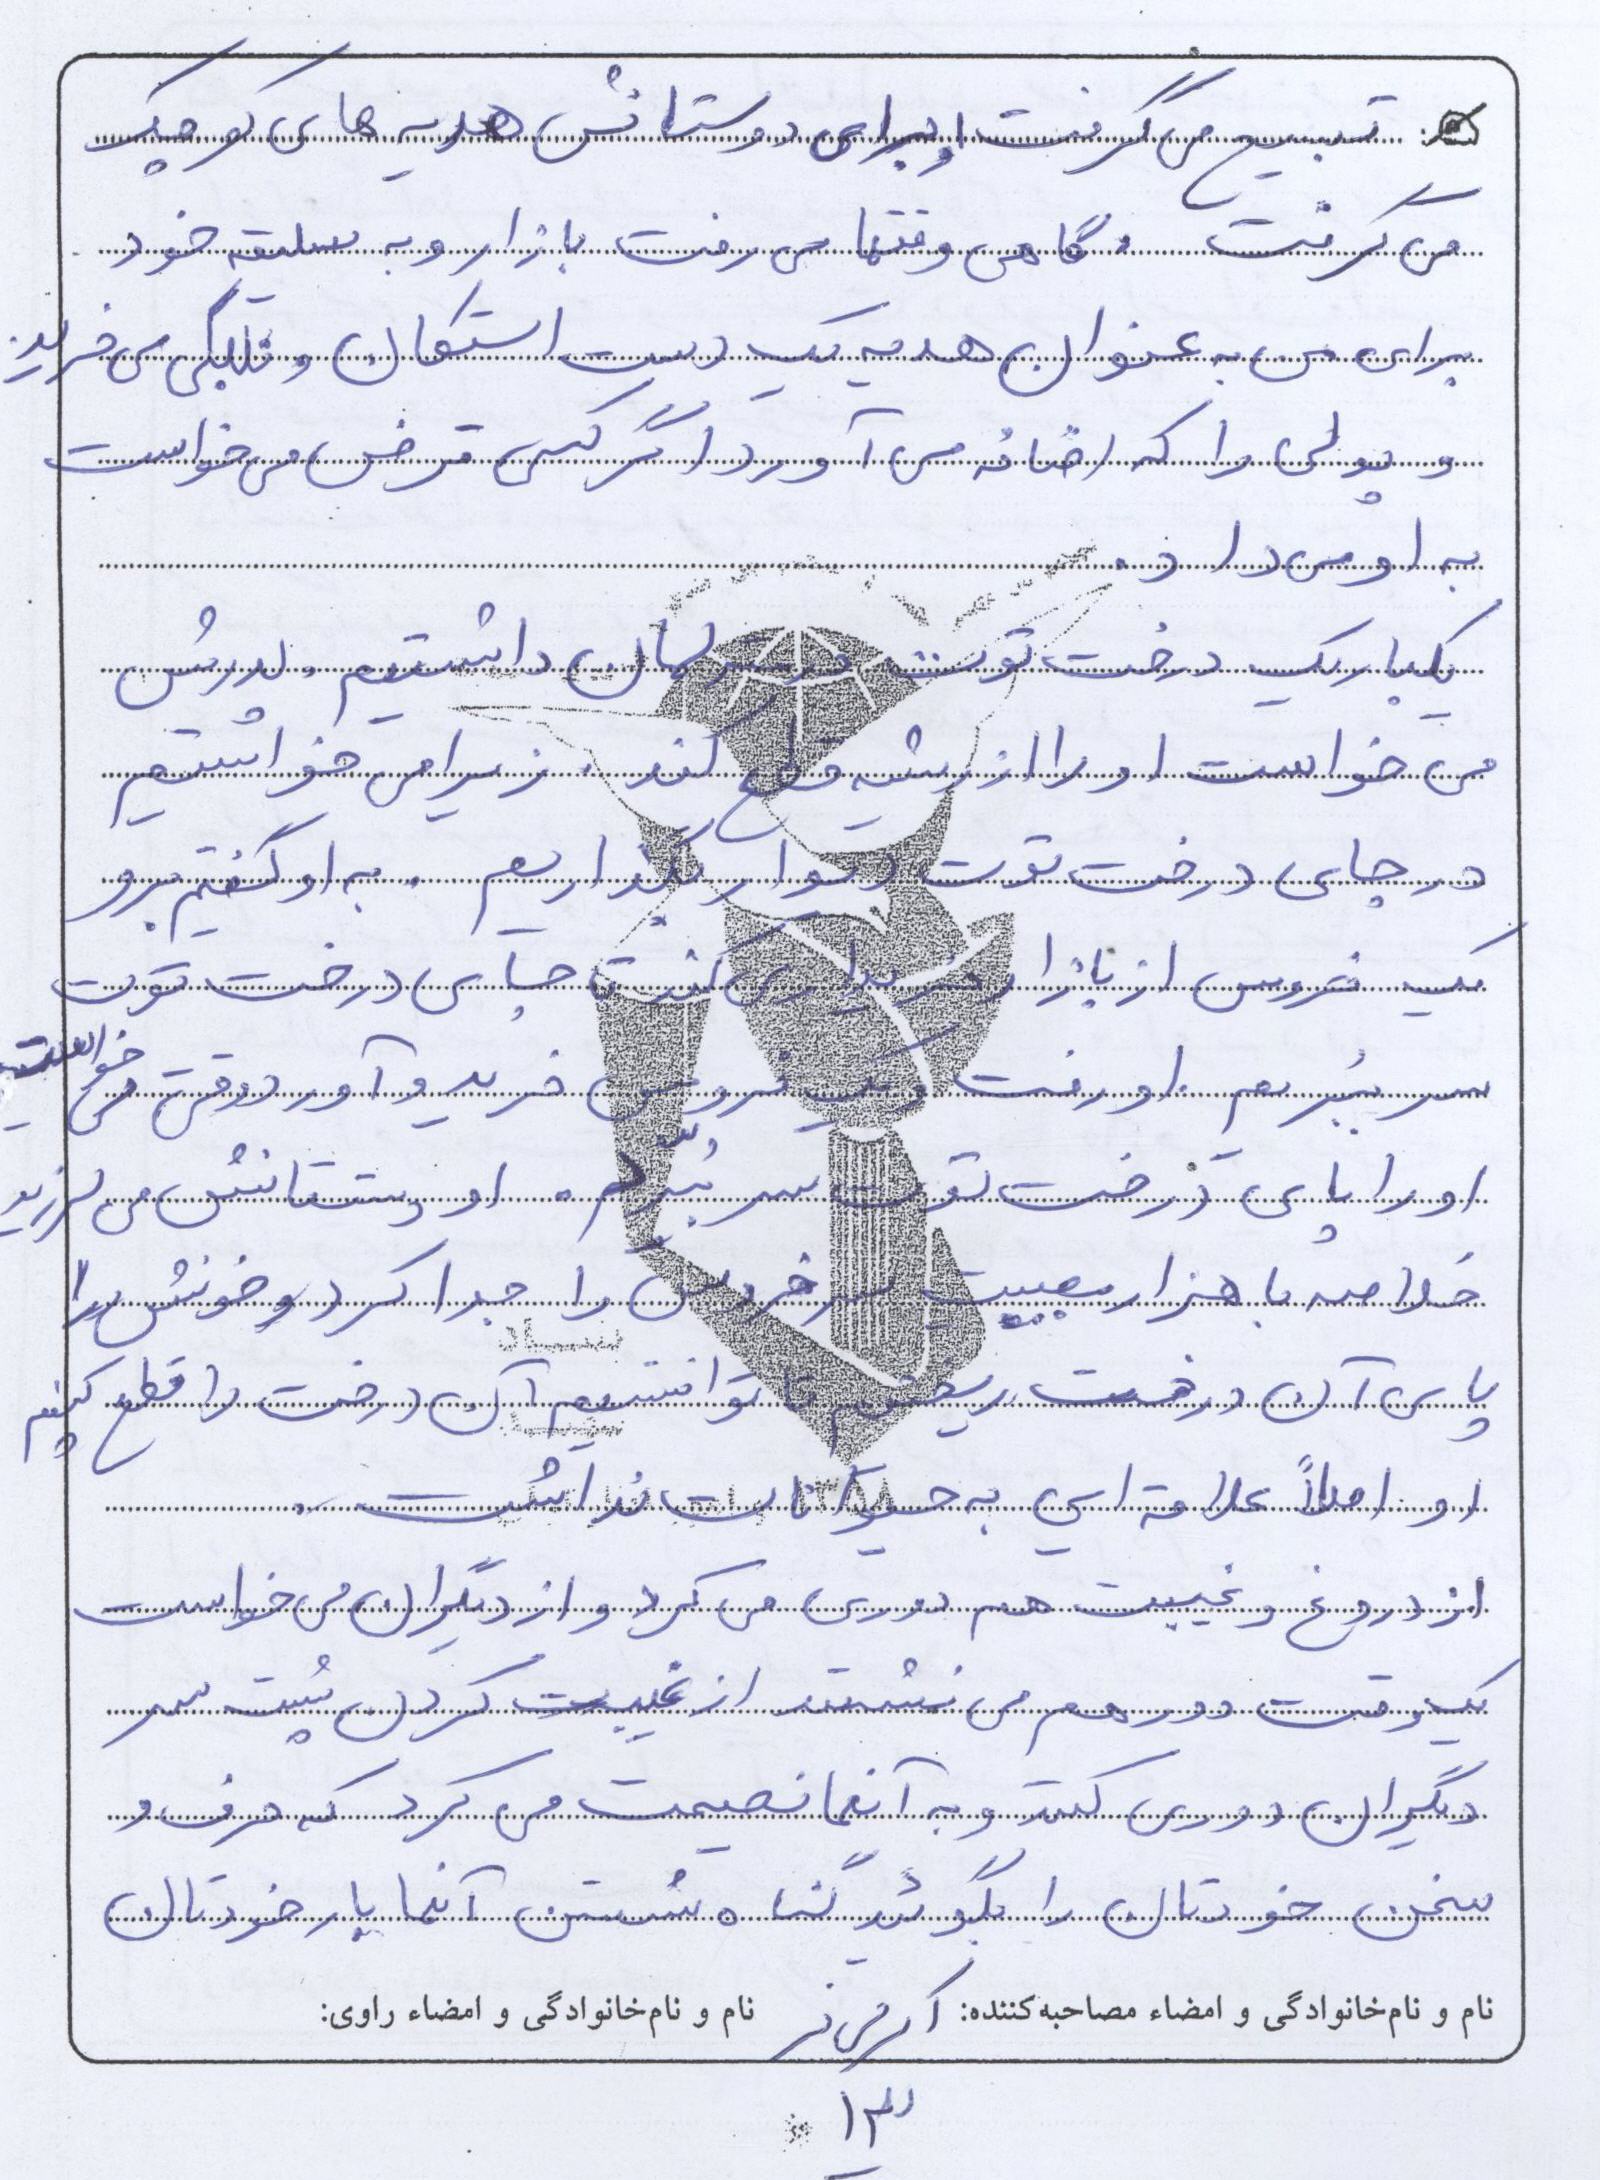 تسبیح می گرفت او برای دوستانش هدیه های کوچک
می گرفت . گاهی وقتها می رفت بازار و به سلیقه خود
برای من به عنوان هدیه یک دست استکان و نلبکی می خرید.
و پولی را که اضافه می آورد اگر کسی قرض می خواست
به او می داد .
یکبار یک درخت توت در منزلمان داشتیم . پدرش
می خواست او را از ریشه قطع کند . زیرا می خواستیم
در جای درخت توت دیوار بگذاریم . به او گفتیم برو
یک خروس از بازار خریداری کند تا جای درخت توت
سر ببُریم . او رفت و یک خروس خرید و آورد وقتی می خواست
او را پای درخت توت سر بُبرّد . او دستانش می لرزید
خلاصه با هزار مصیبت سر خروس را جدا کرد و خونش را
پای آن درخت ریختیم تا توانستیم آن درخت را قطع کنیم
او اصلاً علاقه ای به حیوانات نداشت .
از دروغ و غیبت هم دوری می کرد و از دیگران می خواست
یک وقت دور هم می نشستند از غیبت کردن پُشت سر
دیگران دوری کنند و به آنها نصیحت می کرد که حرف و
سخن خودتان را بگوئید گناه شستن آنها پا خودتان
نام و نام‌خانوادگی و امضاء مصاحبه‌کننده: نام و نام‌خانوادگی و امضاء راوی:
۱۳